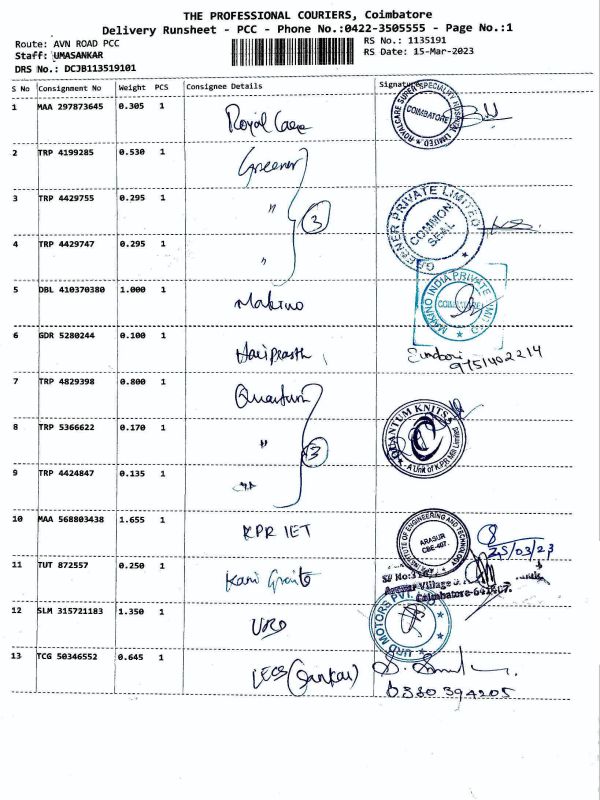 THE PROFESSIONAL COURIERS, Coimbatore
Delivery Runsheet - PCC - Phone No.:0422-3505555 - Page No.:1
Route: AVN ROAD PCC
RS No.: 1135191
Staff: UMASANKAR
RS Date: 15-Mar-2023
DRS No.: DCJB113519101
S No Consignment No Weight PCS Consignee Details Signature
1 MAA 297873645 0.305 1 Royal Care
ROYALCARE SUPER SPECIALITY HOSPITAL LIMITED COIMBATORE
2 TRP 4199285 0.530 1 Greener
3 TRP 4429755 0.295 1 " 3
GREENER PRIVATE LIMITED COMMON SEAL
4 TRP 4429747 0.295 1 "
5 DBL 410370380 1.000 1 Makino
MAKINO INDIA PRIVATE LIMITED COIMBATORE
6 GDR 5280244 0.100 1 Hariprasth
9751402214
7 TRP 4829398 0.800 1 Quantum
8 TRP 5366622 0.170 1 " 3
QUANTUM KNITS A Unit of K.P.R. Mill Limited
9 TRP 4424847 0.135 1 "
10 MAA 568803438 1.655 1 KPR IET
KPR INSTITUTE OF ENGINEERING AND TECHNOLOGY ARASUR CBE-407.
25/03/23
11 TUT 872557 0.250 1 Kani Granite
SF No:
Arasur Village
Coimbatore-641407.
12 SLM 315721183 1.350 1 URD
URD MOTORS PVT. LTD.
13 TCG 50346552 0.645 1 LECS (Sankar)